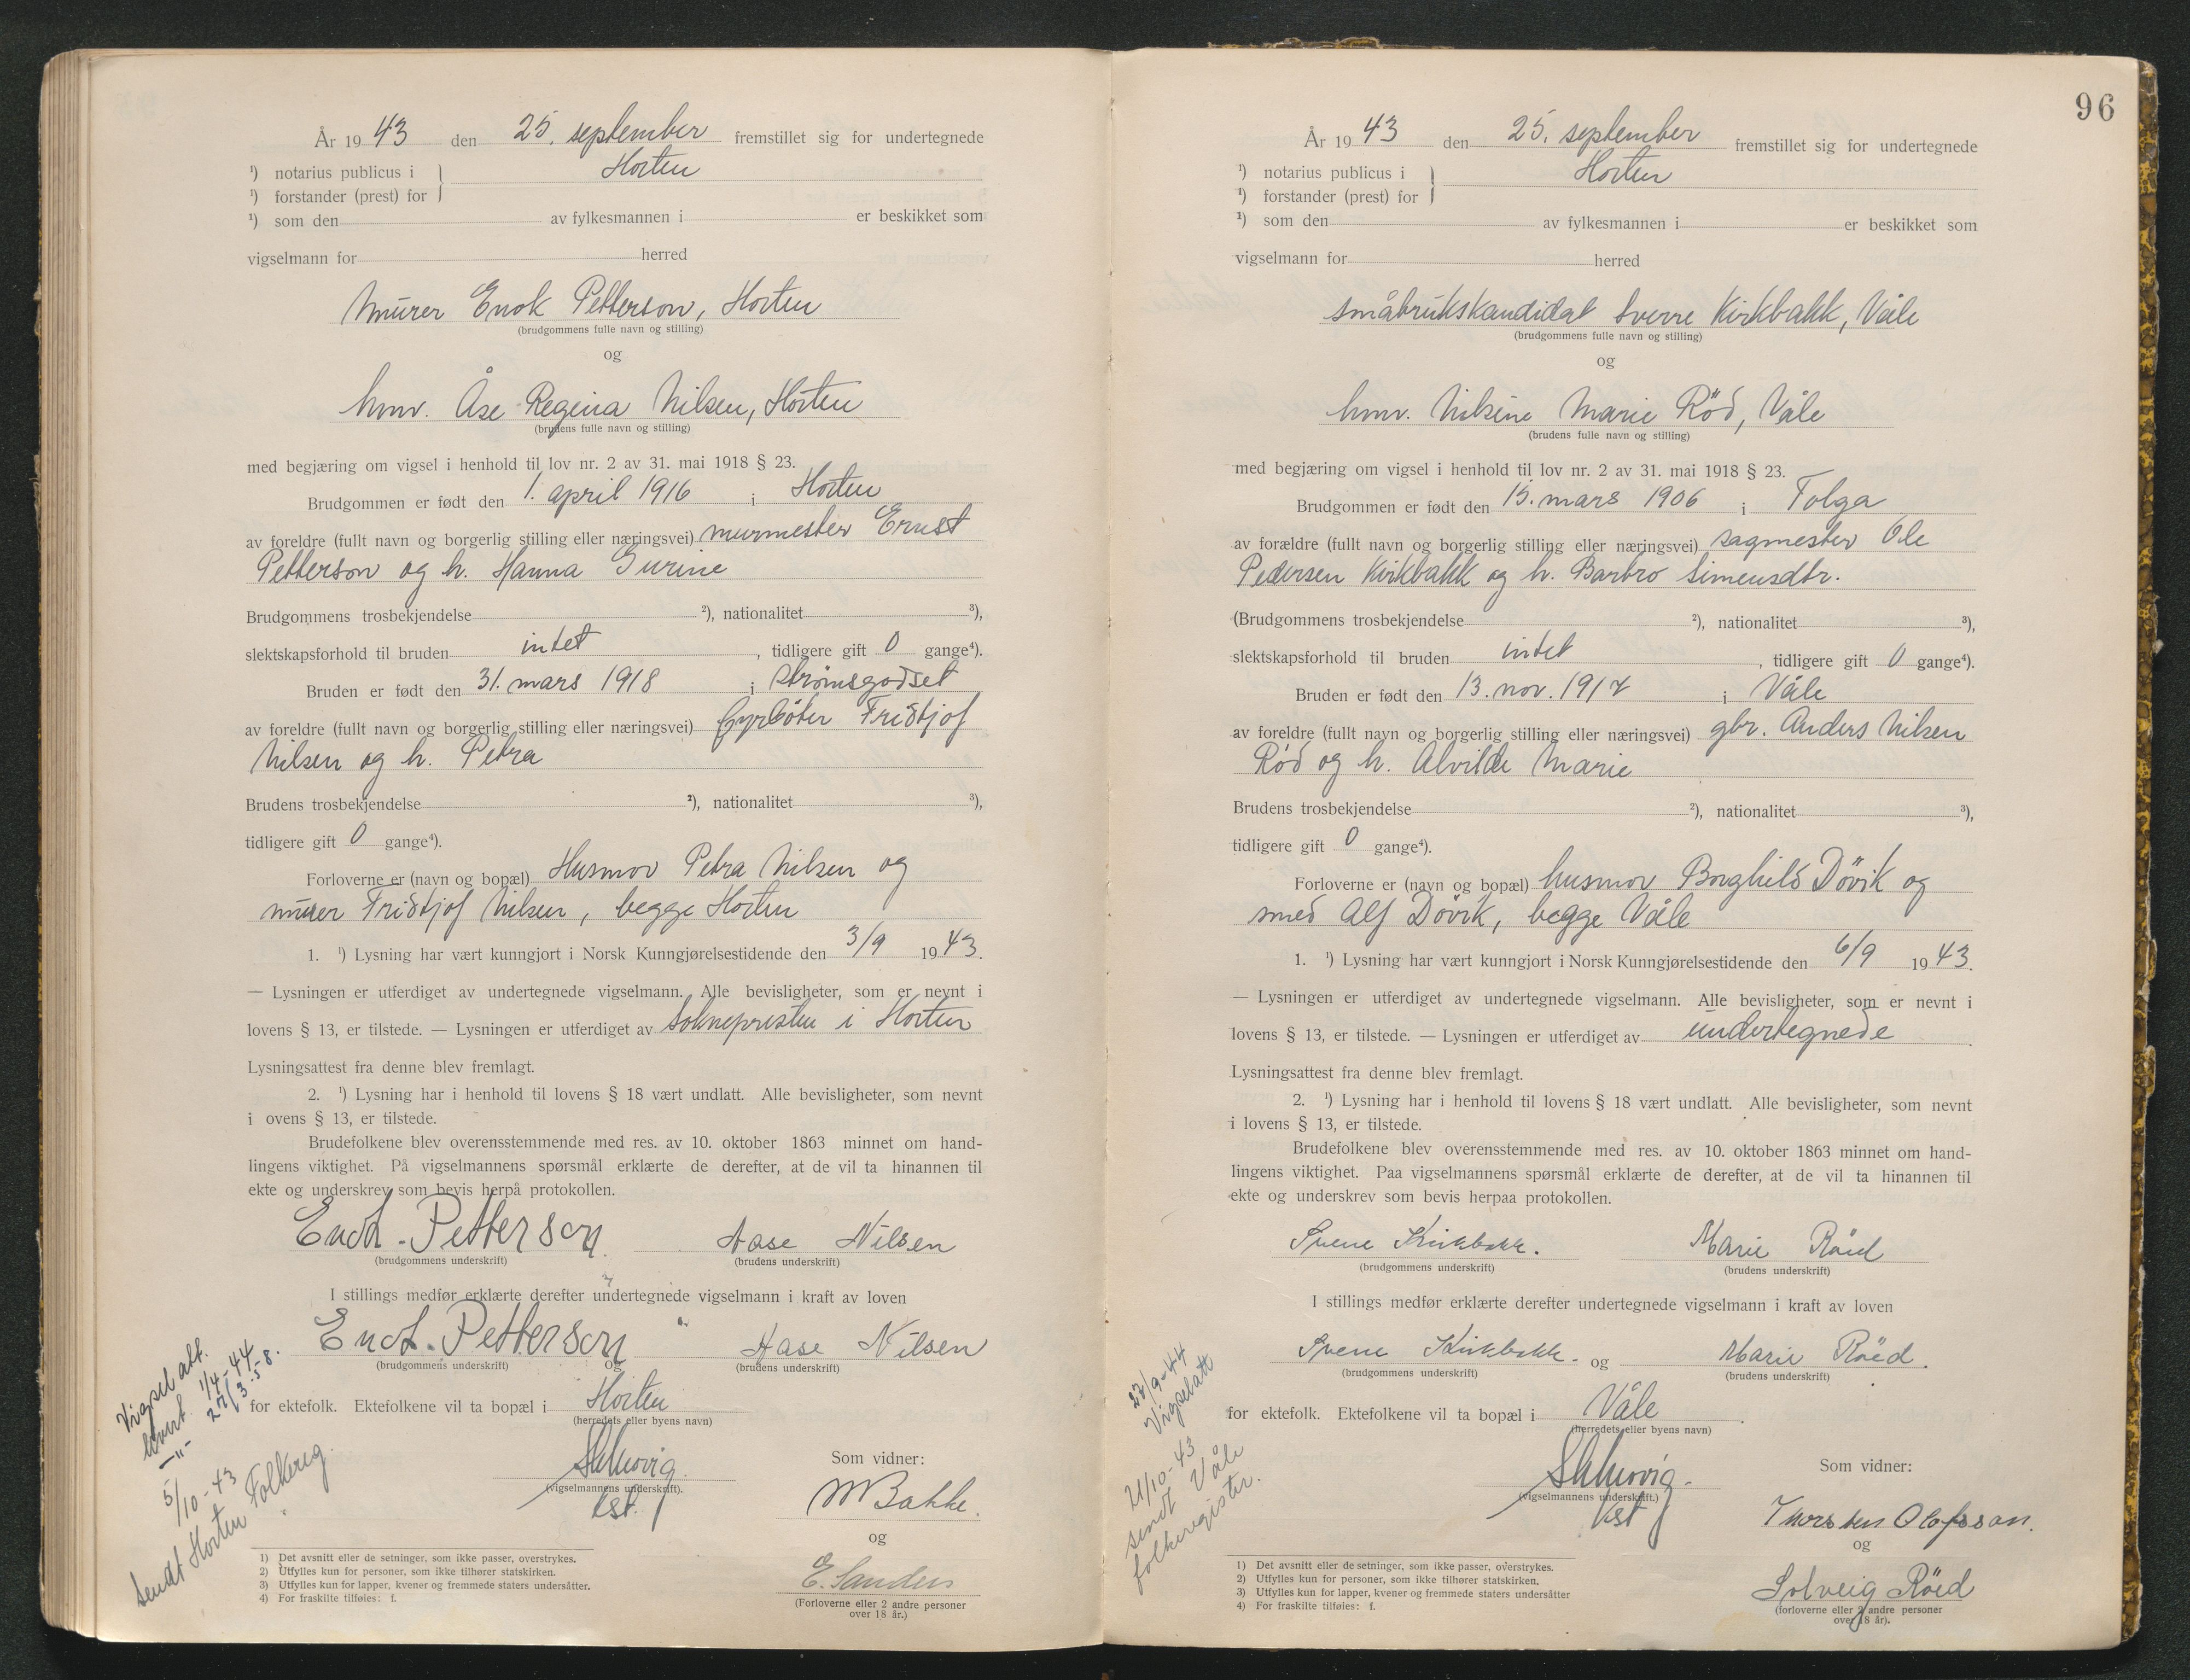 År 1943 den 25. september fremstillet sig for undertegnede
¹) notarius publicus i } Horten
¹) forstander (prest) for
¹) som den av fylkesmannen i er beskikket som
vigselmann for herred
Murer Enok Petterson, Horten
(brudgommens fulle navn og stilling)
og
hmv. Åse Regina Nilsen, Horten
(brudens fulle navn og stilling)
med begjæring om vigsel i henhold til lov nr. 2 av 31. mai 1918 § 23.
Brudgommen er født den 1. april 1916 i Horten
av foreldre (fullt navn og borgerlig stilling eller næringsvei) murmester Ernst
Petterson og h. Hanna Gurine
Brudgommens trosbekjendelse ²), nationalitet ³),
slektskapsforhold til bruden intet, tidligere gift 0 gange⁴).
Bruden er født den 31. mars 1918 i Strömsgodset
av foreldre (fullt navn og borgerlig stilling eller næringsvei) fyrböter Fridtjof
Nilsen og h. Petra
Brudens trosbekjendelse ²), nationalitet ³),
tidligere gift 0 gange⁴).
Forloverne er (navn og bopæl) Husmor Petra Nilsen og
murer Fridtjof Nilsen, begge Horten
1. ¹) Lysning har vært kunngjort i Norsk Kunngjørelsestidende den 3/9 1943.
— Lysningen er utferdiget av undertegnede vigselmann. Alle bevisligheter, som er nevnt i
lovens § 13, er tilstede. — Lysningen er utferdiget av Soknepresten i Horten
Lysningsattest fra denne blev fremlagt.
2. ¹) Lysning har i henhold til lovens § 18 vært undlatt. Alle bevisligheter, som nevnt
i ovens § 13, er tilstede.
Brudefolkene blev overensstemmende med res. av 10. oktober 1863 minnet om hand-
lingens viktighet. På vigselmannens spørsmål erklærte de derefter, at de vil ta hinannen til
ekte og underskrev som bevis herpå protokollen.
Enok. Petterson. Aase Nilsen
(brudgommens underskrift) (brudens underskrift)
I stillings medfør erklærte derefter undertegnede vigselmann i kraft av loven
Enok. Petterson Aase Nilsen
(brudgommens underskrift) og (brudens underskrift)
for ektefolk. Ektefolkene vil ta bopæl i Horten
(herredets eller byens navn)
Som vidner:
(vigselmannens underskrift).
kst.
M Bakke.
og
E. Sanders
(Forloverne eller 2 andre personer
over 18 år.)
1) Det avsnitt eller de setninger, som ikke passer, overstrykes.
2) Utfylles kun for personer, som ikke tilhører statskirken.
3) Utfylles kun for lapper, kvener og fremmede staters undersåtter.
4) For fraskilte tilføies: f.
Vigsel att.
levert 1/4-44
—"— 27/3-58.
5/10-43
sendt Horten Folkereg.
96
År 1943 den 25. september fremstillet sig for undertegnede
¹) notarius publicus i } Horten
¹) forstander (prest) for
¹) som den av fylkesmannen i er beskikket som
vigselmann for herred
småbrukskandidat Sverre Kirkbakk, Våle
(brudgommens fulle navn og stilling)
og
hmv. Nilsine Marie Röd, Våle
(brudens fulle navn og stilling)
med begjæring om vigsel i henhold til lov nr. 2 av 31. mai 1918 § 23.
Brudgommen er født den 15. mars 1906 i Tolga
av forældre (fullt navn og borgerlig stilling eller næringsvei) sagmester Ole
Pedersen Kirkbakk og h. Barbro Simensdtr.
(Brudgommens trosbekjendelse ²), nationalitet ³),
slektskapsforhold til bruden intet, tidligere gift 0 gange⁴).
Bruden er født den 13. nov. 1917 i Våle
av foreldre (fullt navn og borgerlig stilling eller næringsvei) gbr. Anders Nilsen
Röd og h. Alvilde Marie
Brudens trosbekjendelse ²), nationalitet ³),
tidligere gift 0 gange⁴).
Forloverne er (navn og bopæl) husmor Borghild Dövik og
smed Alf Dövik, begge Våle
1. ¹) Lysning har vært kunngjort i Norsk Kunngjørelsestidende den 6/9 1943.
— Lysningen er utferdiget av undertegnede vigselmann. Alle bevisligheter, som er nevnt i
lovens § 13, er tilstede. — Lysningen er utferdiget av undertegnede.
Lysningsattest fra denne blev fremlagt.
2. ¹) Lysning har i henhold til lovens § 18 vært undlatt. Alle bevisligheter, som nevnt
i lovens § 13, er tilstede.
Brudefolkene blev overensstemmende med res. av 10. oktober 1863 minnet om hand-
lingens viktighet. Paa vigselmannens spørsmål erklærte de derefter, at de vil ta hinannen til
ekte og underskrev som bevis herpaa protokollen.
Sverre Kirkbakk. Marie Röed
(brudgommens underskrift) (brudens underskrift)
I stillings medfør erklærte derefter undertegnede vigselmann i kraft av loven
Sverre Kirkbakk. og Marie Röed.
(brudgommens underskrift) (brudens underskrift)
for ektefolk. Ektefolkene vil ta bopæl i Våle.
(herredets eller byens navn)
Som vidner:
(vigselmannens underskrift.)
kst
Thorsten Olafsson.
og
Solveig Röed
(forloverne eller 2 andre personer
over 18 år).
1) Det avsnitt eller de setninger, som ikke passer, overstrykes.
2) Utfylles kun for personer, som ikke tilhører statskirken.
3) Utfylles kun for lapper, kvener og fremmede staters undersåtter
4) For fraskilte tilføies: f.
27/9-44
Vigselatt
21/10-43
sendt Våle
folkeregister.